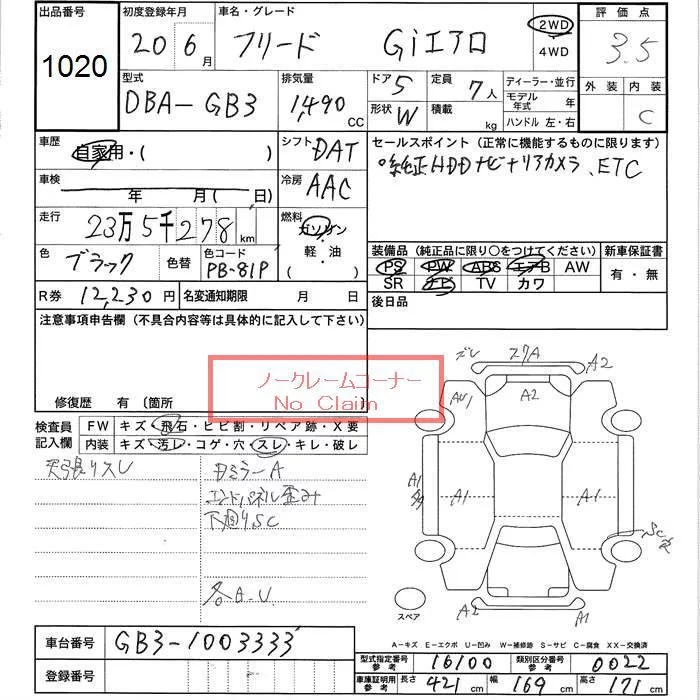 出品番号
1020
初度登録年月
20 6月
車名・グレード
フリード Giエアロ
2WD
4WD
評価点
3.5
外装 内装
C
型式
DBA-GB3
排気量
1,490 CC
ドア 5
形状 W
定員 7人
積載 kg
ディーラー・並行
モデル年式 年
ハンドル 左・右
車歴
自家用・( )
シフト DAT
セールスポイント (正常に機能するものに限ります)
純正HDDナビ、リアカメラ、ETC
車検
年 月( 日)
冷房 AAC
走行
23万5千278 km
燃料
ガソリン
・
軽・油
( )
色
ブラック
色替
色コード
PB-81P
装備品 (純正品に限り○をつけてください)
PS PW ABS エアB AW
SR ナビ TV カワ
新車保証書
有・無
R券 12,230円
名変通知期限 月 日
後日品
注意事項申告欄 (不具合内容等は具体的に記入して下さい)
ノークレームコーナー
No Claim
修復歴 有 (箇所 )
検査員記入欄
FW キズ・飛石・ヒビ割・リペア跡・X要
内装 キズ・汚レ・コゲ・穴・スレ・キレ・破レ
天張りスレ
ミラーA
エンドパネル歪み
下廻りSC
各A.U
ズレ スリA A2
AU1 A2
A1 A1 A1
SC
A2 A1
スペア
車台番号 GB3-1003333
登録番号
A-キズ E-エクボ U-凹み W-補修跡 S-サビ C-腐食 XX-交換済
型式指定番号 参考 16100
類別区分番号 参考 0022
車庫証明用 参考 長さ 421 cm 幅 169 cm 高さ 171 cm